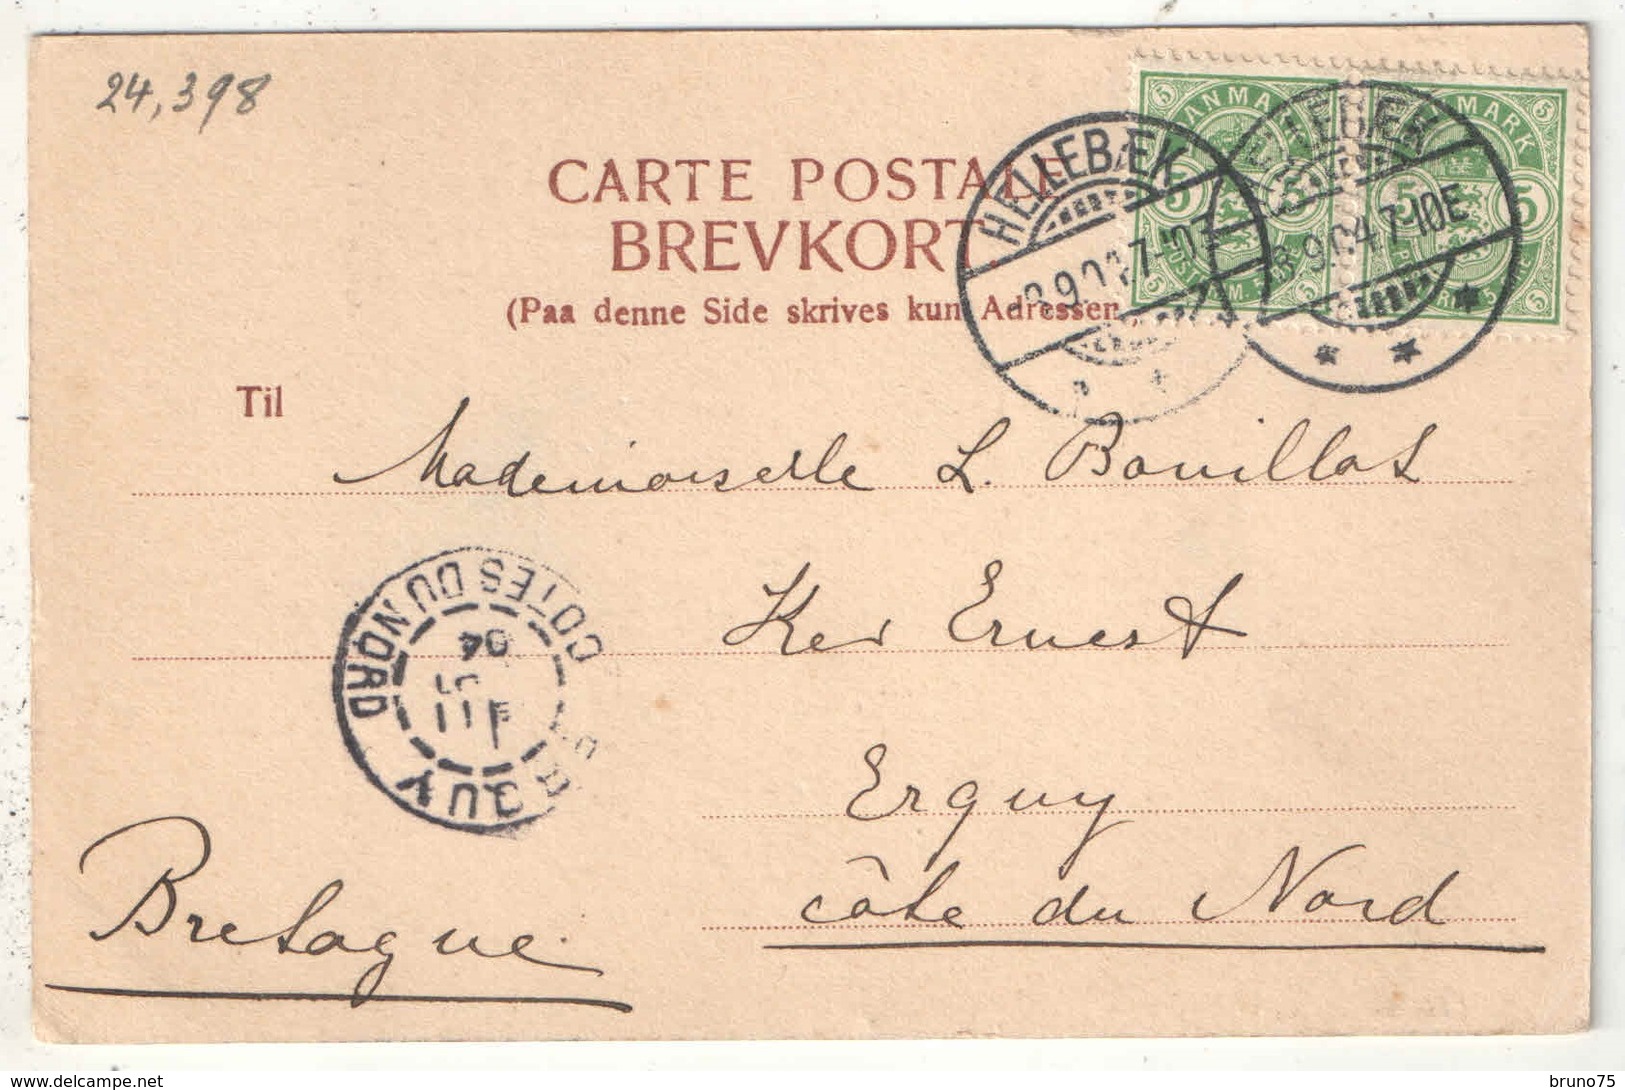 24,398
CARTE POSTALE
BREVKORT
(Paa denne Side skrives kun Adressen
DANMARK
DANMARK
5 5 5 5
HELLEBÆK
8.9.04.7-10E
HELLEBÆK
8.9.04.7-10E
Til
Mademoiselle L. Bouillot
Ker Ernest
Erquy
côte du Nord
Bretagne.
ERQUY
COTES DU NORD
11
04
bruno75